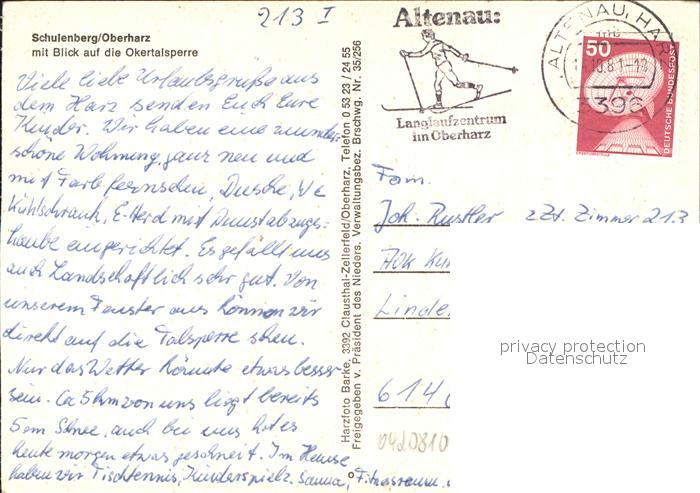 213 I
Schulenberg/Oberharz
mit Blick auf die Okertalsperre
Viele liebe Urlaubsgrüße aus
dem Harz senden Euch Eure
Kinder. Wir haben eine wunder-
schöne Wohnung, ganz neu und
mit Farbfernsehen, Dusche, Wc
Kühlschrank, E-Herd mit Dunstabzugs-
haube eingerichtet. Es gefällt uns
auch Landschaftlich sehr gut. Von
unserem Fenster aus können wir
direkt auf die Talsperre sehen.
Nur das Wetter könnte etwas besser
sein. Ca 5 km von uns liegt bereits
5cm Schnee, auch bei uns hat es
heute morgen etwas geschneit. Im Hause
haben wir Tischtennis, Kinderspielz. Sauna, Fitnessraum.
Harzfoto Barke, 3392 Clausthal-Zellerfeld/Oberharz, Telefon 0 53 23 / 24 55
Freigegeben v. Präsident des Nieders. Verwaltungsbez. Brschwg. Nr. 35/256
Altenau:
Langlaufzentrum
im Oberharz
ALTENAU, HAR
3396
50
DEUTSCHE BUNDESPOST
Fam.
Joh. Rustler zZt. Zimmer 213
AOK Kur
Linde
614
0420810
privacy protection
Datenschutz